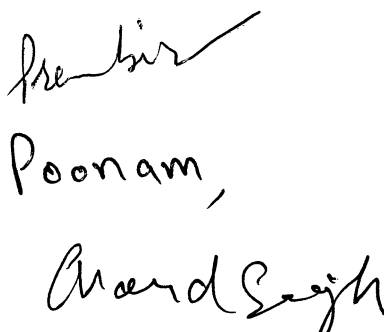 Prembir
Poonam,
Anand Singh